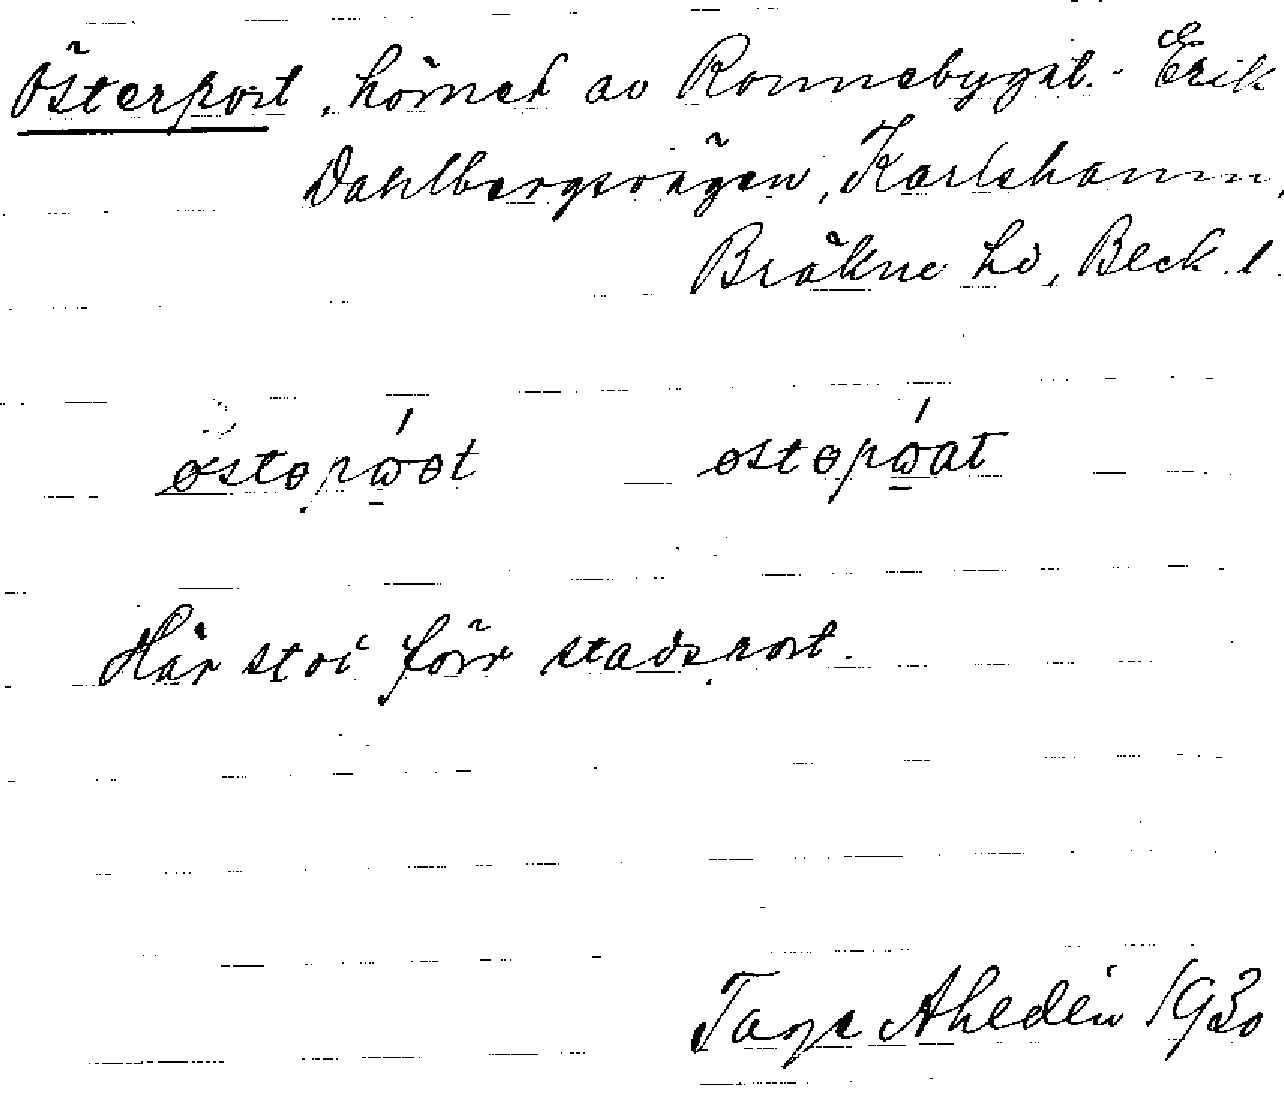 Österport, hörnet av Ronnebygat. - Erik
Dahlbergsvägen, Karlshamn,
Bräkne hd, Blek. l.
Här stod förr stadsport.
Tage Ahldén 1930